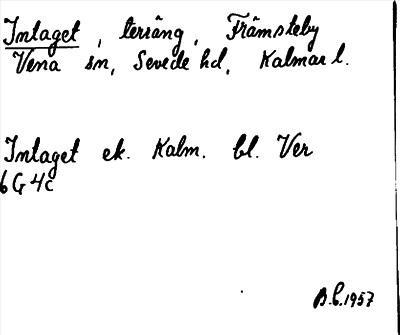 Intaget, terräng, Främsteby
Vena sn, Sevede hd, Kalmar l.
Intaget ek. Kalm. bl. Ver
6G 4c
B.L. 1957